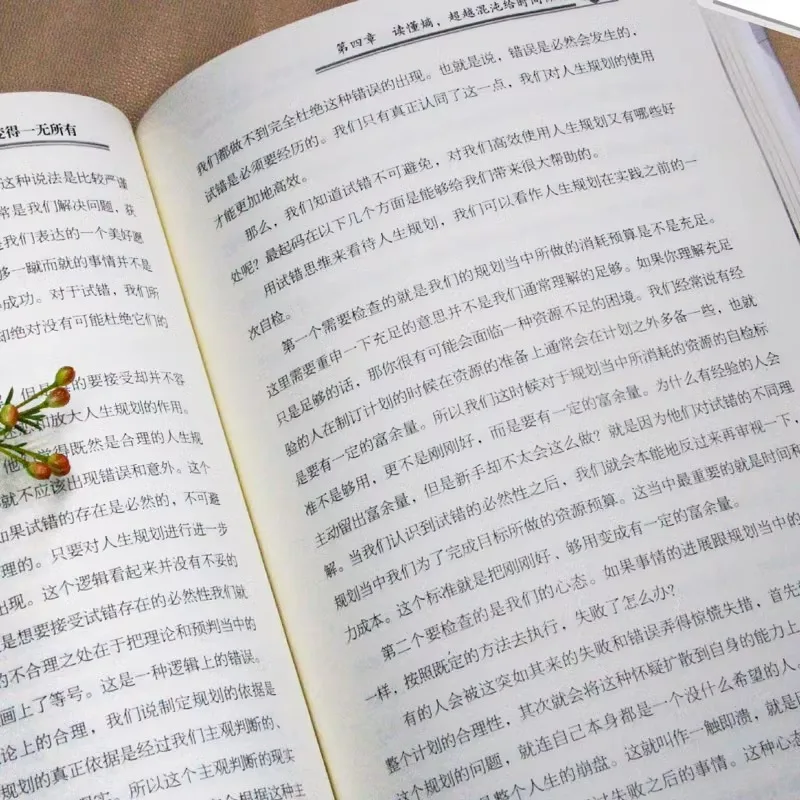 变得一无所有
这种说法是比较严谨
常是我们解决问题,获
是我们表达的一个美好愿
够一蹴而就的事情并不是
成功。对于试错,我们所
却绝对没有可能杜绝它们的
的要接受却并不容
和放大人生规划的作用。
得既然是合理的人生规
就不应该出现错误和意外。这个
如果试错的存在是必然的,不可避
理的。只要对人生规划进行进一步
出现。这个逻辑看起来并没有不妥的
是想要接受试错存在的必然性我们就
的不合理之处在于把理论和预判当中的
画上了等号。这是一种逻辑上的错误。
论上的合理,我们说制定规划的依据是
规划的真正依据是经过我们主观判断的、
现实。所以这个主观判断的、现实
会根据这种主
第四章 读懂熵,超越混沌给时间
我们都做不到完全杜绝这种错误的出现。也就是说,错误是必然会发生的,
试错是必须要经历的。我们只有真正认同了这一点,我们对人生规划的使用
才能更加地高效。
那么,我们知道试错不可避免,对我们高效使用人生规划又有哪些好
处呢?最起码在以下几个方面是能够给我们带来很大帮助的。
用试错思维来看待人生规划,我们可以看作人生规划在实践之前的一
次自检。
第一个需要检查的就是我们的规划当中所做的消耗预算是不是充足。
这里需要重申一下充足的意思并不是我们通常理解的足够。如果你理解充足
只是足够的话,那你很有可能会面临一种资源不足的困境。我们经常说有经
验的人在制订计划的时候在资源的准备上通常会在计划之外多备一些,也就
是要有一定的富余量。所以我们这时候对于规划当中所消耗的资源的自检标
准不是够用,更不是刚刚好,而是要有一定的富余量。为什么有经验的人会
主动留出富余量,但是新手却不太会这么做?就是因为他们对试错的不同理
解。当我们认识到试错的必然性之后,我们就会本能地反过来再审视一下,
规划当中我们为了完成目标所做的资源预算。这当中最重要的就是时间和
力成本。这个标准就是把刚刚好、够用变成有一定的富余量。
第二个要检查的是我们的心态。如果事情的进展跟规划当中的
一样,按照既定的方法去执行,失败了怎么办?
有的人会被这突如其来的失败和错误弄得惊慌失措,首先
整个计划的合理性,其次就会将这种怀疑扩散到自身的能力上
这个规划的问题,就连自己本身都是一个没什么希望的人。
是整个人生的崩盘。这就叫作一触即溃,就是
失败之后的事情。这种心态